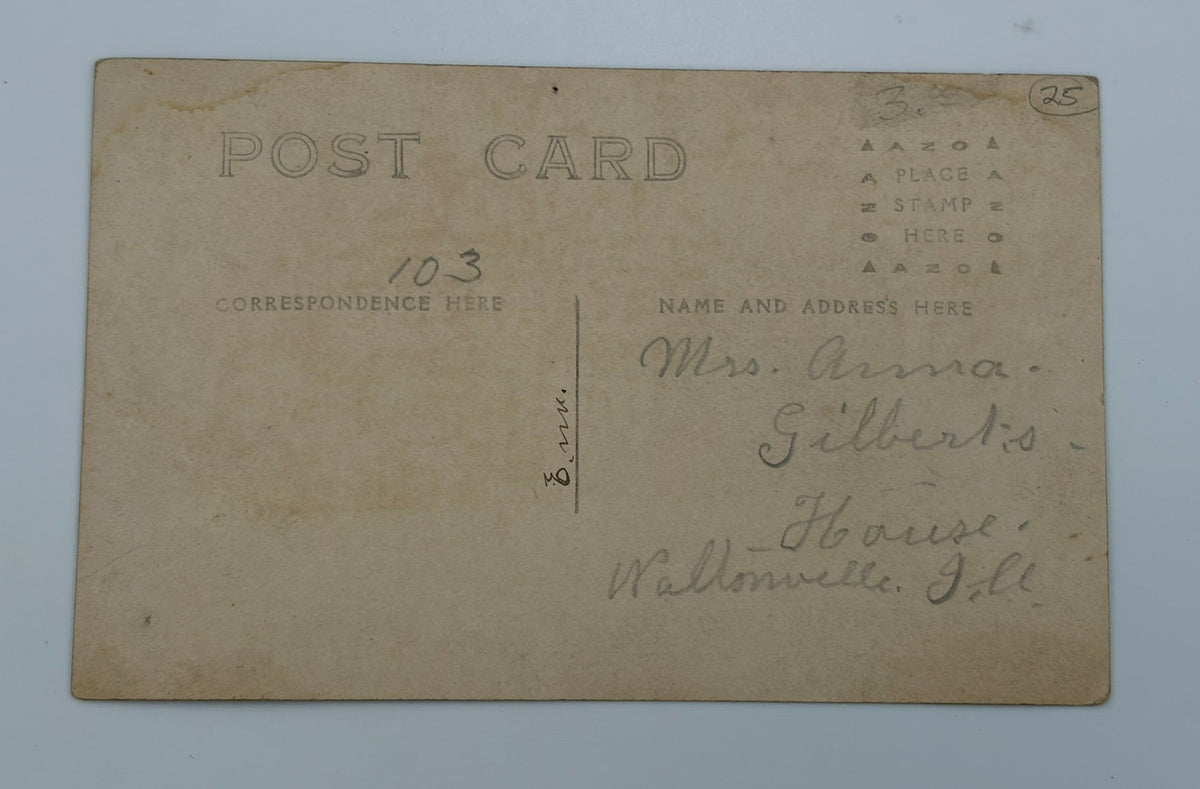 3.
25
POST CARD
▲ A Z O ▲
A PLACE A
N STAMP N
O HERE O
▲ A Z O ▲
103
CORRESPONDENCE HERE
NAME AND ADDRESS HERE
Mrs. Anna.
Gilbert's -
House.
Waltonville. Ill.